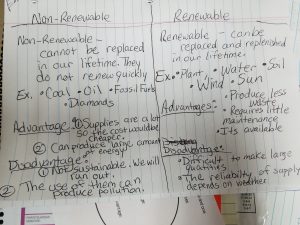 Non-Renewable
Non-Renewable -
cannot be replaced
in our lifetime. They
do not renew quickly
Ex. • Coal • Oil • Fossil Fuels
• Diamonds
Advantage: ① Supplies are a lot
so the cost would be
cheaper.
② Can produce large amount
of energy
Disadvantage:
① Not Sustainable. We will
run out.
② The use of them can
produce pollution.
Renewable
Renewable - can be
replaced and replenished
in our lifetime.
Ex • Plant • Water • Soil
• Wind • Sun
Advantages:
• Produce less
waste
• Requires little
maintenance
• Its available
Disadvantage:
• Difficult to make large
quantities
• The reliabilty of supply
depends on weather